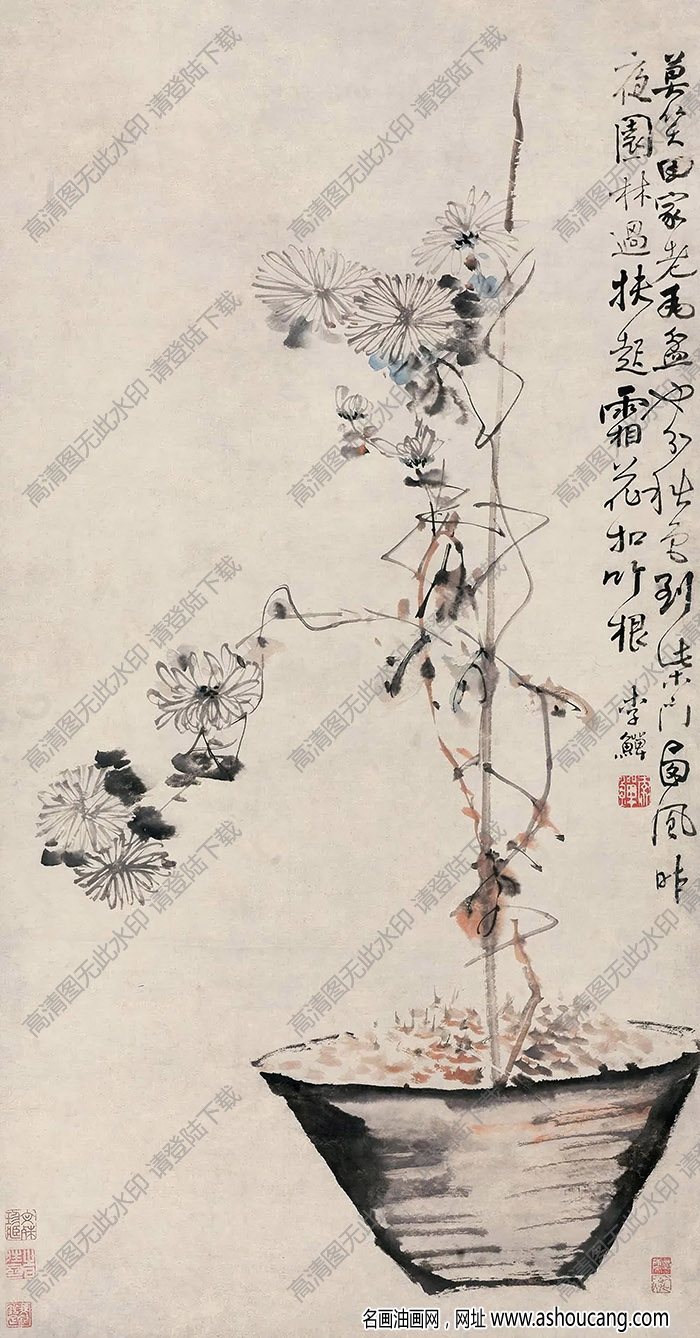 莫笑田家老瓦盆也分秋色到柴門西風昨
夜園林過扶起霜花扣竹根
李鱓
高清图无此水印 请登陆下载
高清图无此水印 请登陆下载
高清图无此水印 请登陆下载
高清图无此水印 请登陆下载
高清图无此水印 请登陆下载
高清图无此水印 请登陆下载
高清图无此水印 请登陆下载
高清图无此水印 请登陆下载
高清图无此水印 请登陆下载
高清图无此水印 请登陆下载
名画油画网，网址 www.ashoucang.com